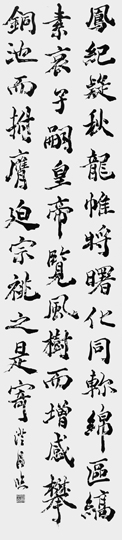 鳳紀疑秋龍帷將曙化同綿區縞
素哀子嗣皇帝覽風樹而增感攀
銅池而拊膺迫宗祧之是寄